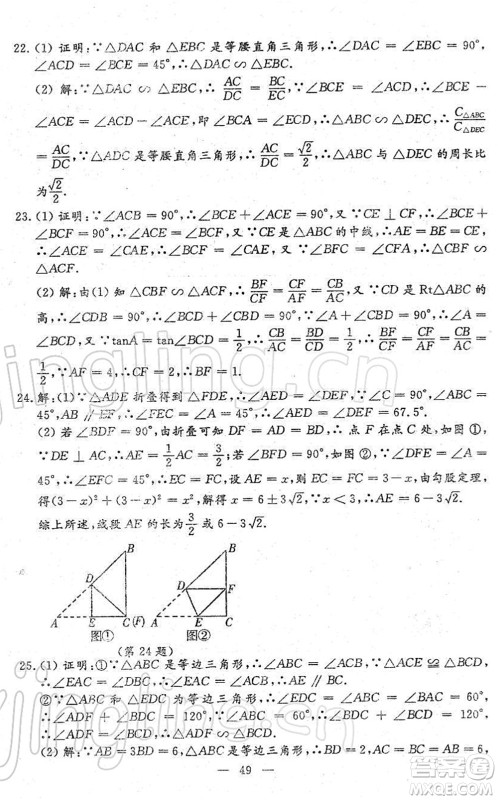 22. (1) 证明:∵△DAC 和 △EBC 是等腰直角三角形,∴∠DAC = ∠EBC = 90°,
∠ACD = ∠BCE = 45°,∴△DAC ∽ △EBC.
(2) 解:∵△DAC ∽ △EBC,∴AC/DC = BC/EC,∵∠DCA = ∠ECB,∴∠BCE
− ∠ACE = ∠DCA − ∠ACE,即 ∠BCA = ∠ECD,∴△ABC ∽ △DEC,∴C△ABC/C△DEC
= AC/DC,∵△DAC 是等腰直角三角形,∴AC/DC = √2/2,∴△ABC 与 △DEC 的周长比
为√2/2.
23. (1) 证明:∵∠ACB = 90°,∴∠BCE + ∠ACE = 90°,又 ∵CE ⊥ CF,∴∠BCE +
∠BCF = 90°,∴∠ACE = ∠BCF,又 ∵CE 是 △ABC 的中线,∴AE = BE = CE,
∴∠ACE = ∠CAE,∴∠BCF = ∠CAE,又 ∵∠BFC = ∠CFA,∴△CBF ∽
△ACF.
(2) 解:由(1) 知 △CBF ∽ △ACF,∴BF/CF = CF/AF = CB/AC,又 ∵CD 是 Rt△ABC 的
高,∴∠CDB = 90°,∴∠BCD + ∠CBD = 90°,又 ∵∠A + ∠CBD = 90°,∴∠A =
∠BCD,又 ∵tanA = tan∠BCD = 1/2,∴CB/AC = BD/CD = 1/2,∴BF/CF = CF/AF = CB/AC =
1/2,∵AF = 4,∴CF = 2,∴BF = 1.
24. 解:(1) ∵△ADE 折叠得到 △FDE,∴△ADE ≌ △FDE,∴∠DFE = ∠A =
45°,AB ∥ EF,∴∠FEC = ∠A = 45°,∴∠AED = ∠FED = 67.5°.
(2) 若 ∠BDF = 90°,由折叠可知 BD = DF = AD,∴ 点 F 在点 C 处,如图①,
∵DE ⊥ AC,∴AE = 1/2AC = 3/2;若 ∠BFD = 90°,如图②,∵∠B = ∠A =
45°,∴BD = √2DF = √2AD,∴CF = 3√2 − 3,设 AE = x,则 EF = x,由勾股定理,
得(3 − x)² + (3 − x)² = x²,解得 x = 6 ± 3√2,∵x < 3,∴x = 6 − 3√2.
综上所述,线段 AE 的长为 3/2 或 6 − 3√2.
B
D
A E C(F)
图①
B
D F
A E C
图②
(第 24 题)
25. (1) 证明:①∵△ABC 是等边三角形,∴∠BAC = ∠ABC,∵△ACE ≌ △BCD,
∴∠EAC = ∠DBC,∴∠EAC = ∠BAC,∴AE ∥ BC.
②∵△ABC 和 △EDC 为等边三角形,∴∠ABC = ∠EDC = 60°,
∴∠ADF + ∠BDC = 120°,∠BCD + ∠BDC = 120°,∴∠ADF =
∠BCD,∵∠DAF = ∠DBC,∴△ADF ∽ △BCD.
(2) 解:∵AB = 3BD = 6,△ABC 是等边三角形,∴AB = AC = BC = 6,
— 49 —